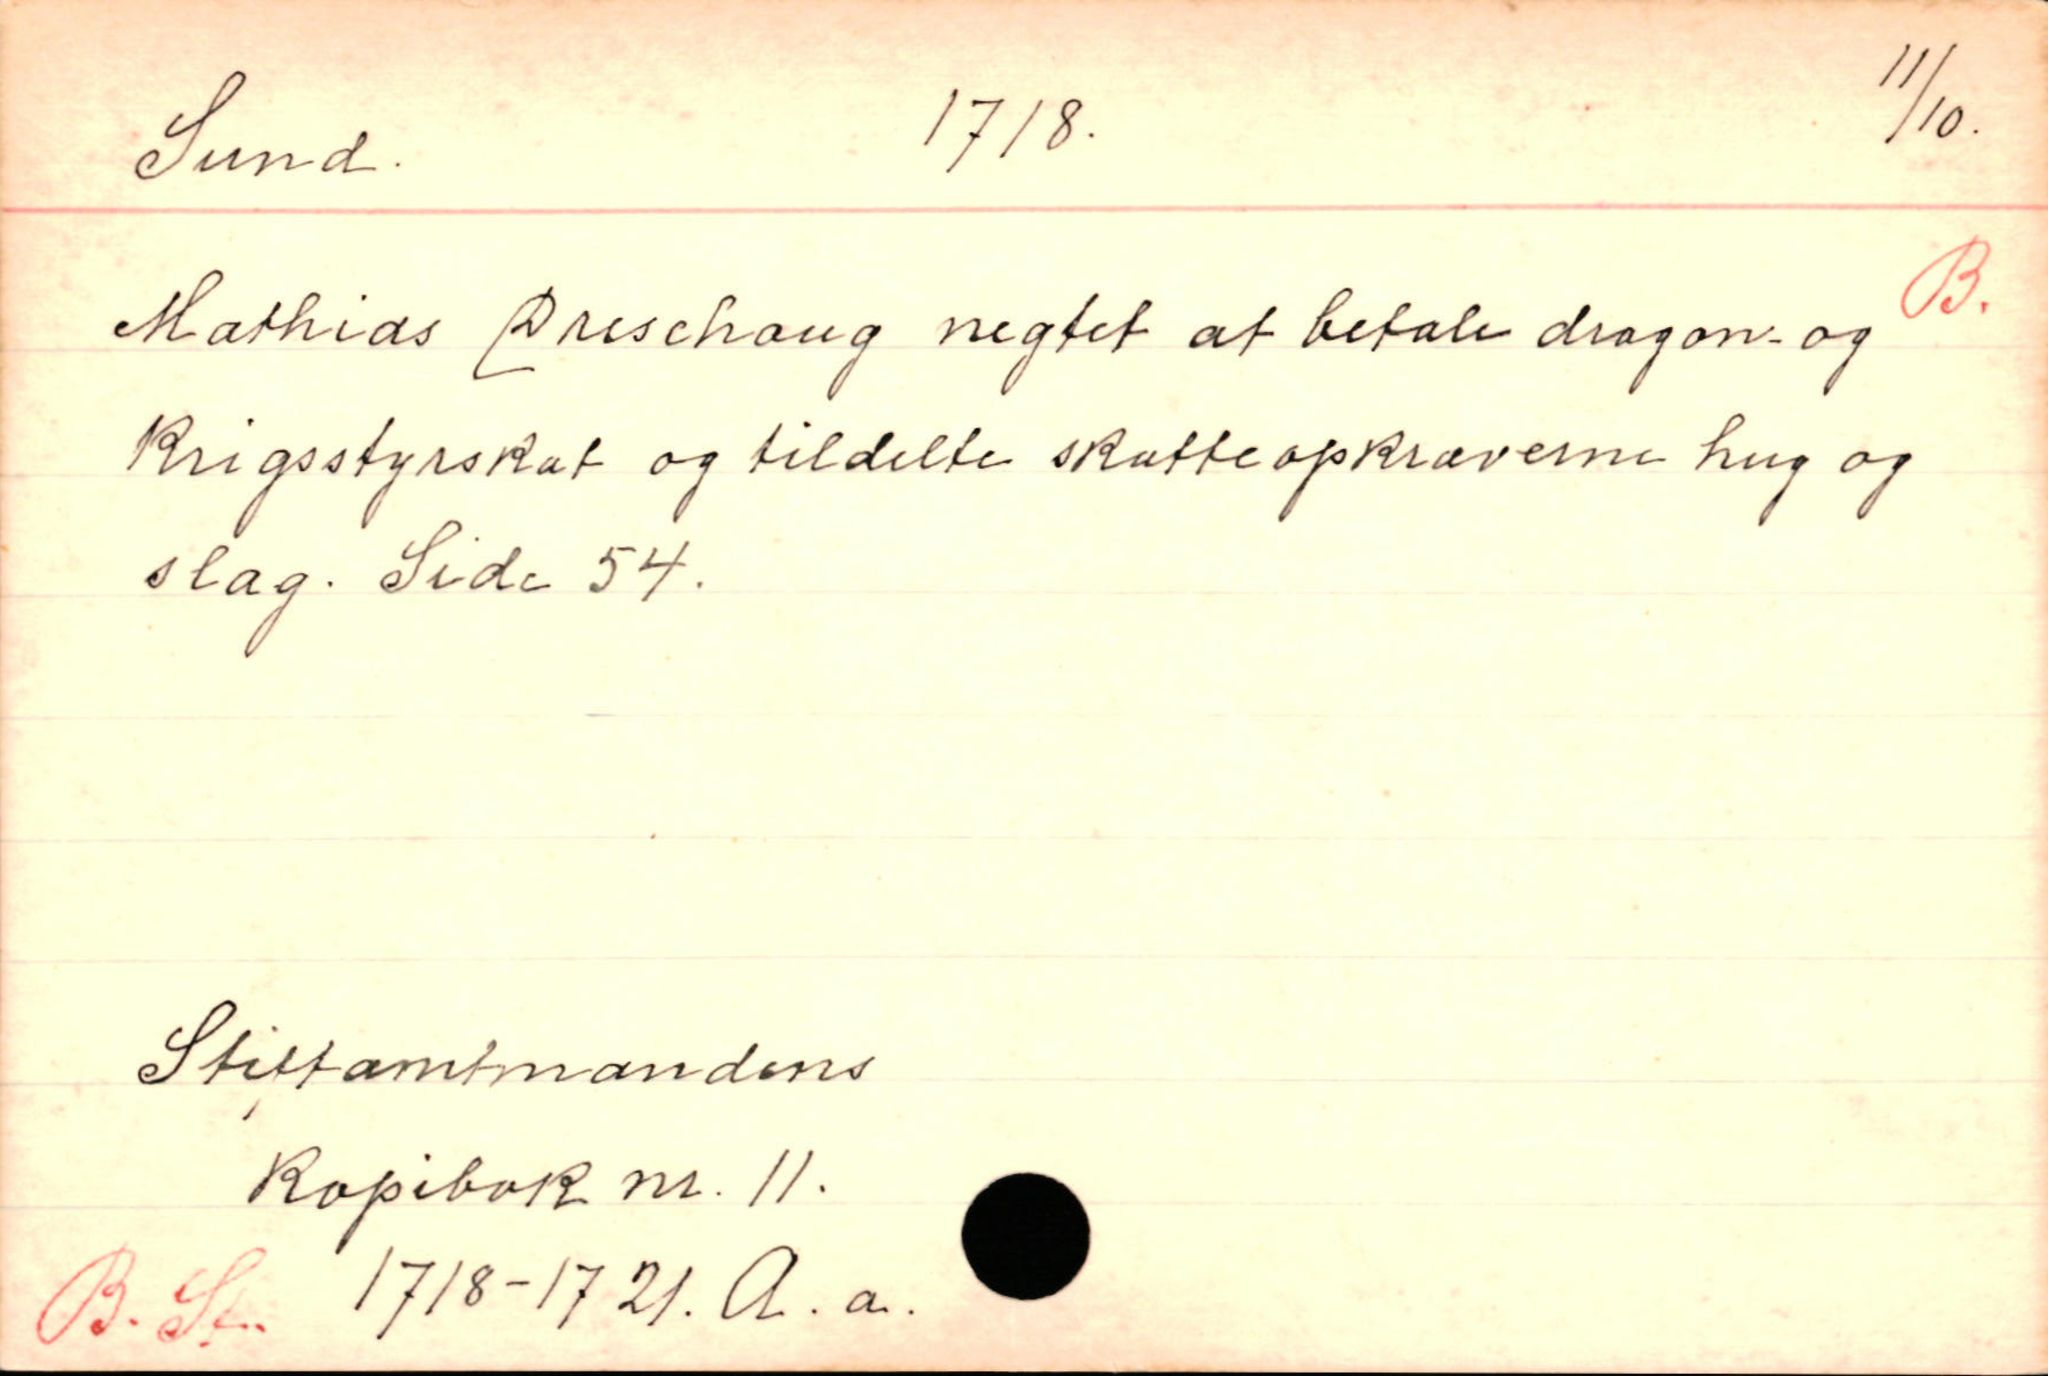 Sund. 1718. 11/10.
B.
Mathias Dreschaug negtet at betale dragon- og
krigsstyrskat og tildelte skatteopkræverne hug og
slag. Side 54.
Stiftamtmandens
Kopibok nr. 11.
B. St. 1718-1721. A. a.